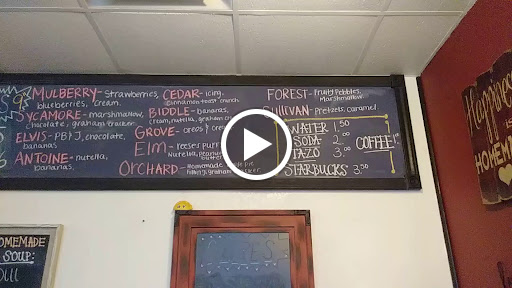 MULBERRY - Strawberries,
blueberries, cream.
SYCAMORE - marshmallow,
chocolate, graham cracker.
ELVIS - PB & J, chocolate,
bananas
ANTOINE - nutella,
bananas,
CEDAR - icing,
cinnamon toast crunch
BIDDLE - bananas,
cream, nutella, graham
GROVE - oreos &
Elm - reeses puff
Nutella, peanut
ORCHARD - Homemade pie
graham cracker
FOREST - fruity Pebbles,
Marshmallow.
SULLIVAN - Pretzels, caramel.
WATER 1.50
SODA 2.00
TAZO 3.00
COFFEE
STARBUCKS 3.50
HOMEMADE
SOUP:
Happiness
IS
HOMEMADE